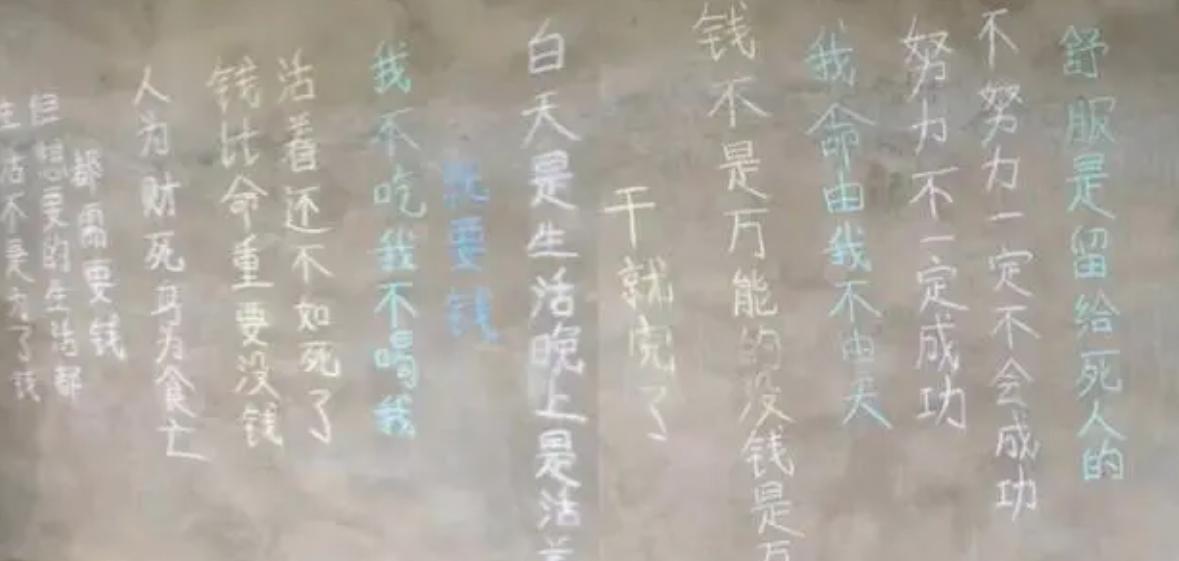 舒服是留给死人的
不努力一定不会成功
努力不一定成功
我命由我不由天
钱不是万能的没钱是万
干就完了
白天是生活晚上是活着
就要钱
我不吃我不喝我
活着还不如死了
钱比命重要没钱
人为财死鸟为食亡
都需要钱
但想要的生活都
生活不是为了钱